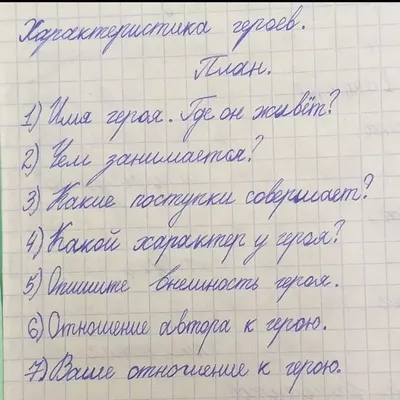 Характеристика героев.
План.
1) Имя героя. Где он живёт?
2) Чем занимается?
3) Какие поступки совершает?
4) Какой характер у героя?
5) Опишите внешность героя.
6) Отношение автора к герою.
7) Ваше отношение к герою.